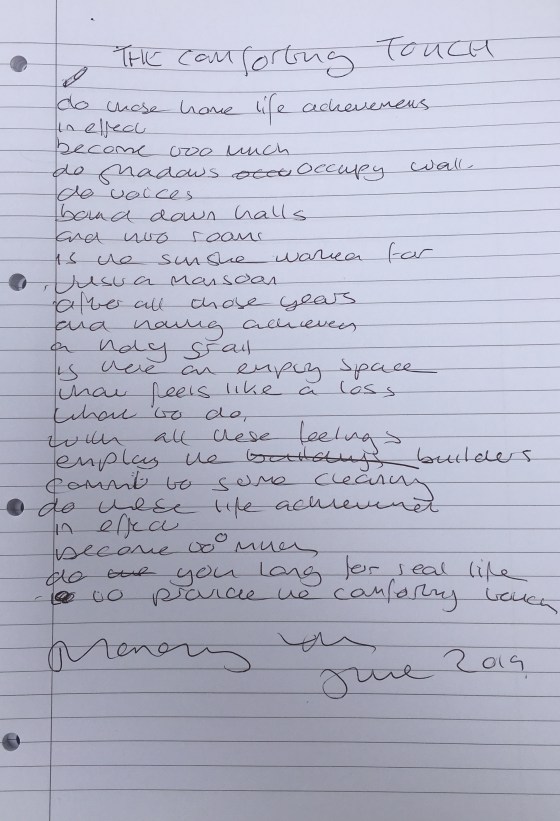 THE comforting TOUCH
do those home life achievements
in effect
become too much
do shadows occupy wall
do voices
bound down halls
and into rooms
is the sunshine wanted for
just a monsoon
after all those years
and having achieved
a holy grail
is there an empty space
that feels like a loss
what to do,
with all these feelings
employ the buildings builders
commit to some cleaning
do these life achievement
in effect
become too much
do you long for real life
to provide the comforting touch
June 2019